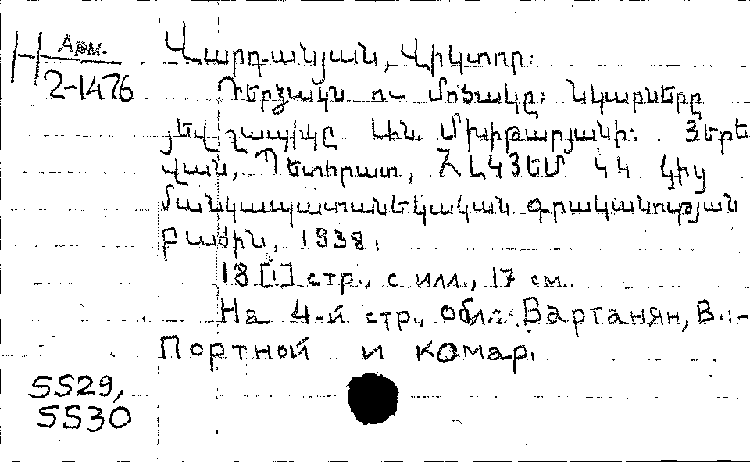 Арм.
2-1476
Վարդանյան, Վիկտոր։
Դերձակն ու մոծակը։ Նկարները
յեվ շապիկը Ս. Մխիթարյանի։ Յերե
վան, Պետհրատ, ՀԼԿՅԵՄ ԿԿ կից
մանկապատանեկական գրականության
բաժին, 1938.
18 [1] стр., с илл., 17 см.
На 4-й стр., обл.: Вартанян, В.:-
Портной и комар.
5529,
5530